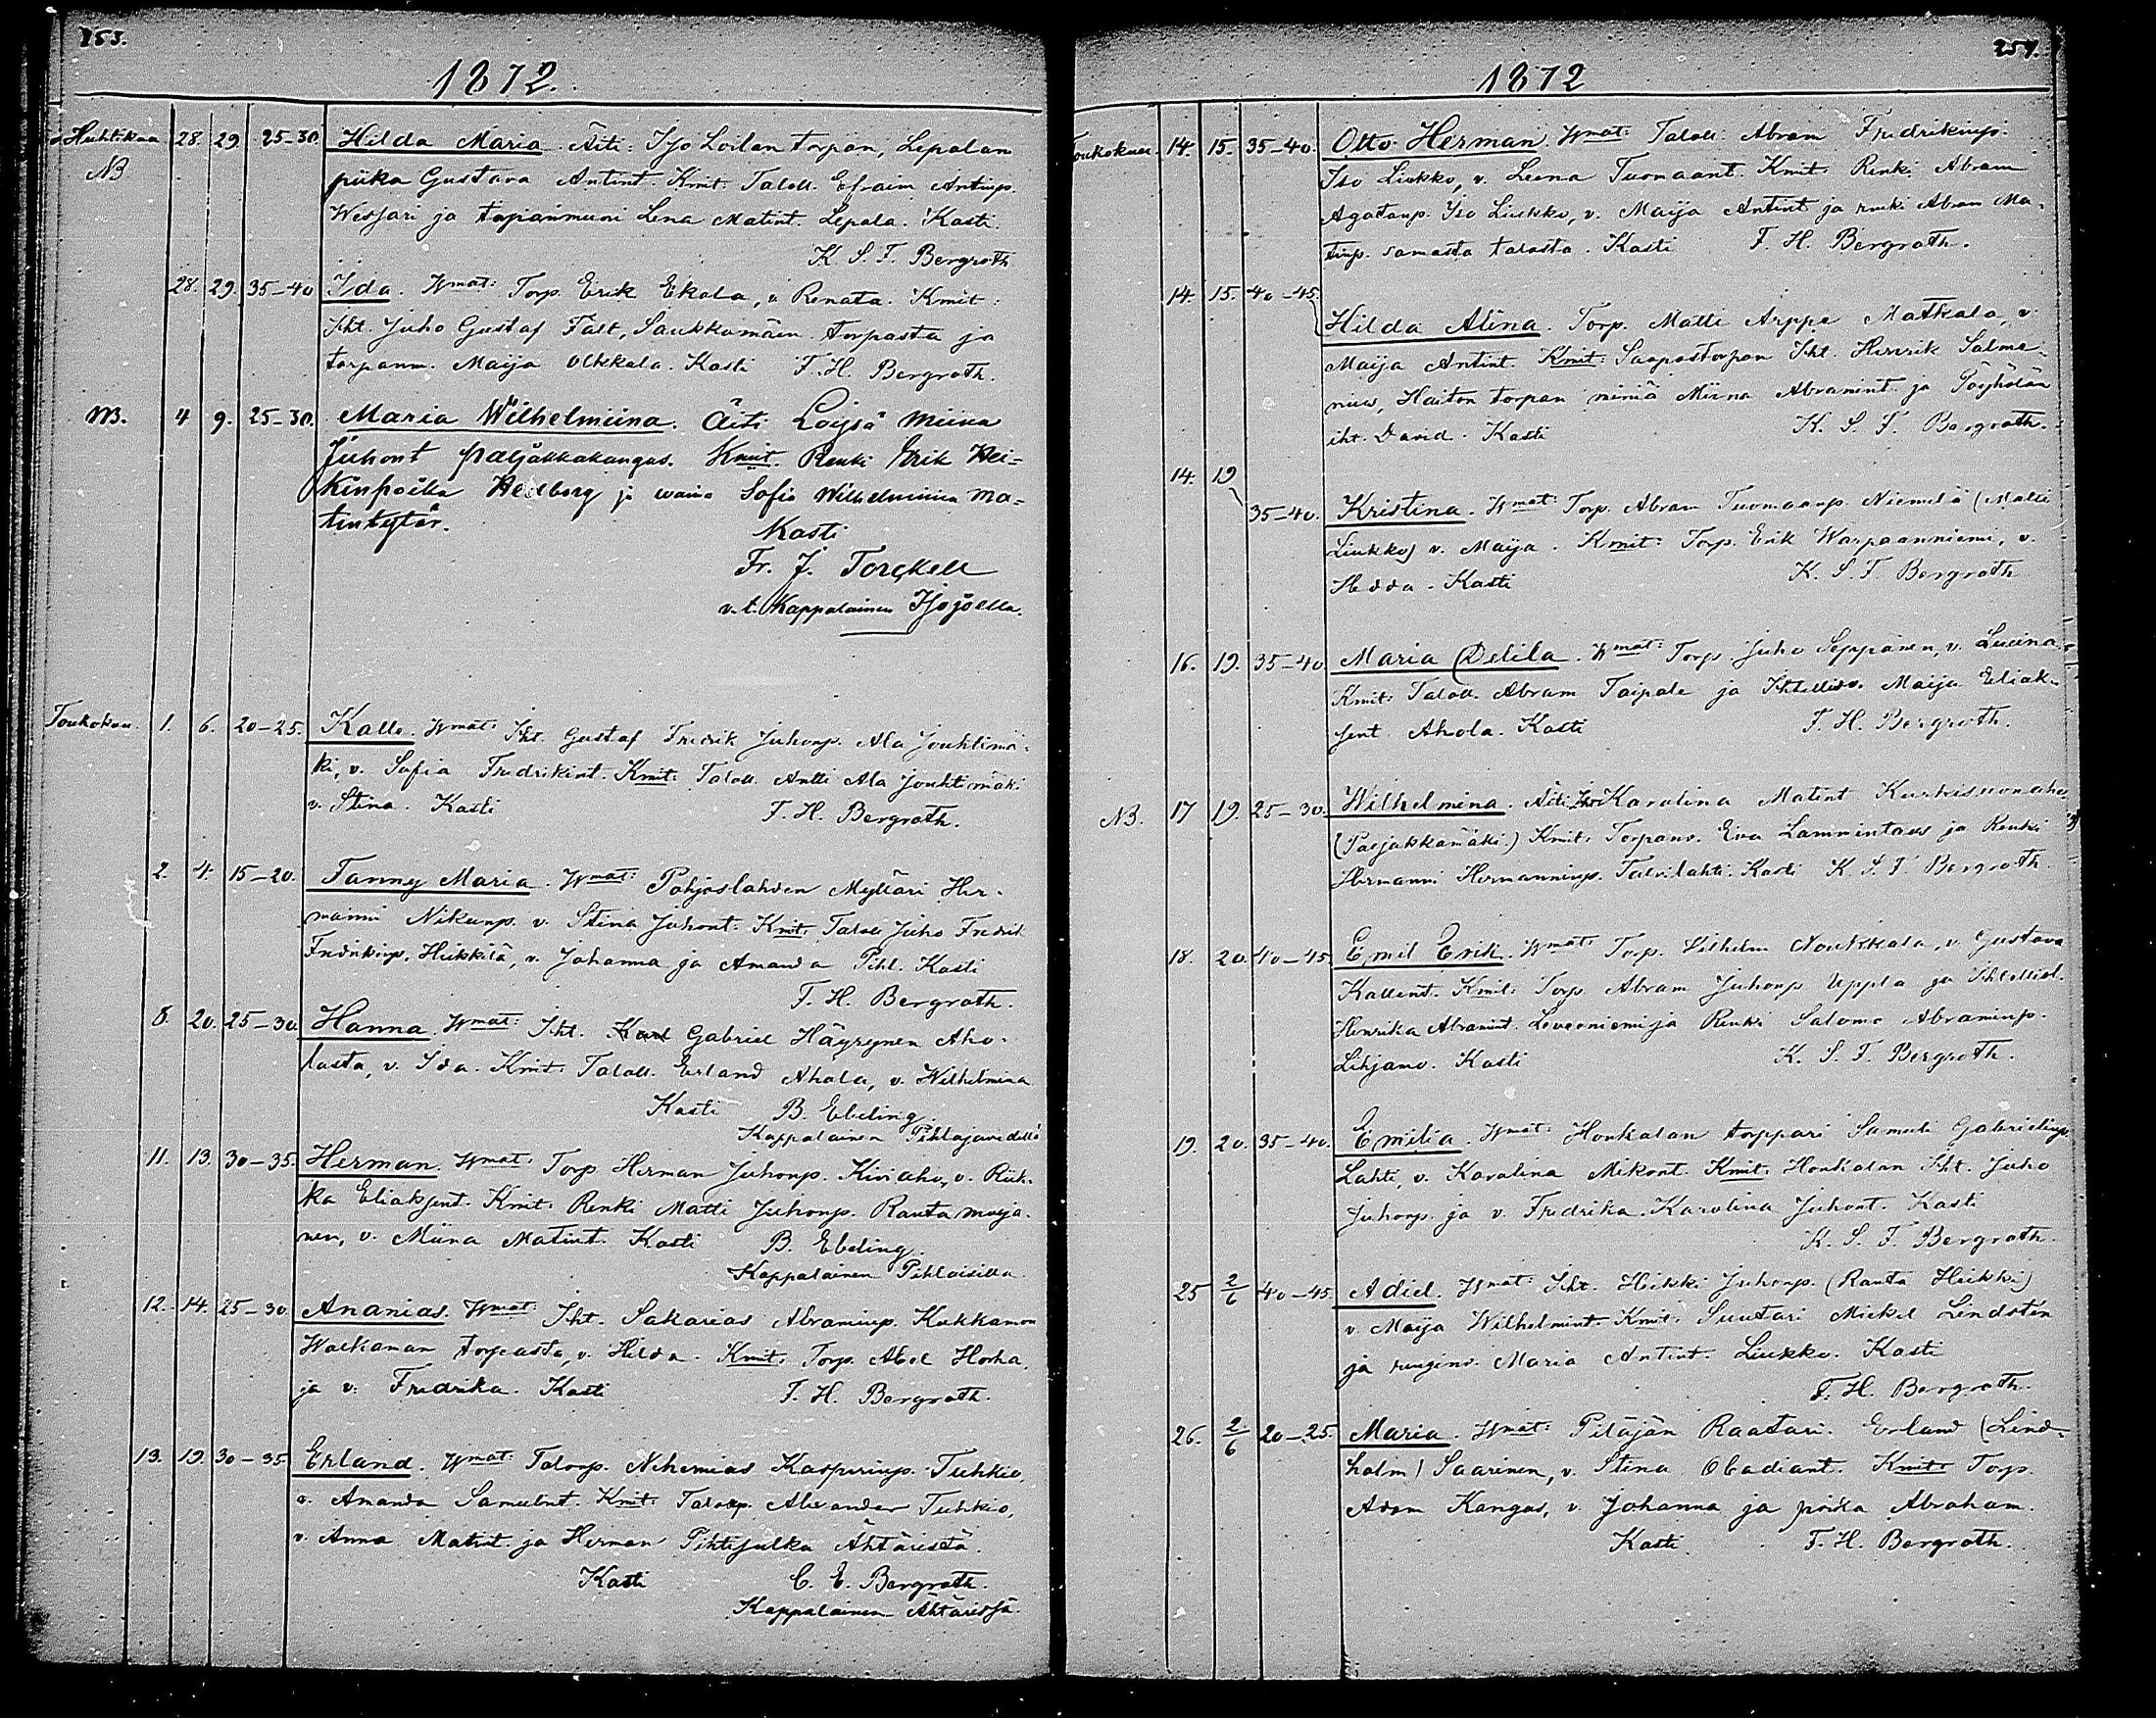 253.
1872.
Huhtikuu 28. 29. 25-30. Hilda Maria. Äiti: Iso Loilan torpan, Lepalan
NB piika Gustava Antint. Kmit. Taloll. Efraim Antinp.
Wessari ja torpanmuori Lena Matint. Lepala. Kasti
K. S. F. Bergroth
28. 29. 35-40 Ida. Wmat: Torp. Erik Ekola, v. Renata. Kmit:
Iht. Juho Gustaf Fält, Saukkomäen torpasta ja
torpanm. Maija Olkkola. Kasti F. H. Bergroth.
NB. 4 9. 25-30. Maria Wilhelmiina. Äiti Löysä Miina
Juhont Paljakkakangas. Kmit. Renki Erik Hei-
kinpoika Hedborg ja waimo Sofia Wilhelmiina Ma-
tintytär.
Kasti
Fr. J. Torckell
v.t. Kappalainen Isojoella.
Toukokuu. 1. 6. 20-25. Kalle. Wmat: Iht. Gustaf Fredrik Juhonp. Ala Jouhtimä-
ki, v. Sofia Fredrikint. Kmit: Taloll. Antti Ala Jouhtimäki
v. Stina. Kasti F. H. Bergroth.
2. 4. 15-20. Fanny Maria. Wmat: Pohjoslahden Mylläri Her-
manni Nikunp. v. Stina Juhont. Kmit: Taloll Juho Fredrik
Fredrikinp. Heikkilä, v. Johanna ja Amanda Pihl. Kasti
F. H. Bergroth.
8. 20. 25-30. Hanna. Wmat: Iht. Gabriel Häyrynen Aho-
lasta, v. Ida. Kmit: Taloll. Erland Ahola, v. Wilhelmina
Kasti B. Ebeling.
Kappalainen Pihlajavedellä
11. 13. 30-35. Herman. Wmat: Torp Herman Juhonp. Kiviaho, v. Riik-
ka Eliaksent. Kmit. Renki Matti Juhonp. Rautamaja-
nen, v. Miina Matint. Kasti B. Ebeling.
Kappalainen Pihlaisilla.
12. 14. 25-30 Ananias. Wmat: Iht. Sakarias Abraminp. Kukkamon
Walkaman torpasta, v. Hilda. Kmit: Torp. Abel Horha,
ja v. Fredrika. Kasti F. H. Bergroth.
13. 19. 30-35 Erland. Wmat: Talonp. Nehemias Kasperinp. Tuhkio,
v. Amanda Samulint. Kmit: Talonp. Alexander Tuhkio,
v. Anna Matint. ja Herman Pihtisulka Ähtäristä.
Kasti C. E. Bergroth.
Kappalainen Ähtärissä.
254.
1872
Toukokuu. 14. 15. 35-40. Otto Herman. Wmat: Taloll. Abram Fredrikinp.
Iso Liukko, v. Leena Tuomaant. Kmit: Renki Abram
Agatanp. Iso Liukko, v. Maija Antint ja renki Abram Ma-
tinp. samasta talosta. Kasti F. H. Bergroth.
14. 15. 40-45. Hilda Alina. Torp. Matti Arppe Matkala, v.
Maija Antint. Kmit: Saapastorpan Iht. Henrik Salme-
nius, Haiton torpan miniä Miina Abramint ja Pöyhölän
iht. David. Kasti K. S. F. Bergroth.
14. 19
35-40. Kristina. Wmat: Torp. Abram Tuomaanp. Niemelä (Matti
Liukko) v. Maija. Kmit: Torp. Erik Warpaanniemi, v.
Hedda. Kasti K. S. F. Bergroth
16. 19. 35-40 Maria Delila. Wmat: Torp Juho Seppänen, v. Luiina.
Kmit: Taloll. Abram Taipale ja Ihtellisv. Maija Eliak-
sent Ahola. Kasti F. H. Bergroth.
NB. 17 19. 25-30. Wilhelmina. Äiti Karolina Matint Kurkisuonaho
(Paljakkamäki.) Kmit: Torpanv. Eva Lammintaus ja Renki
Hermanni Hermanninp. Talvilahti. Kasti K. S. F. Bergroth.
18. 20. 40-45. Emil Erik. Wmat: Torp. Wilhelm Noukkala, v. Gustava
Kallent. Kmit: Torp Abram Juhonp Uppla ja Ihtellisl.
Henrika Abramint. Leveeniemi ja Renki Salomo Abraminp.
Lihjamo. Kasti K. S. F. Bergroth.
19. 20. 35-40. Emilia. Wmat: Honkolan torppari Samuli Gabrielinp.
Lahti, v. Karolina Mikont. Kmit. Honkolan Iht. Juho
Juhonp. ja v. Fredrika Karolina Juhont. Kasti
K. S. F. Bergroth.
25 2/6 40-45. Adiel. Wmat: Iht. Heikki Juhonp. (Rauta Heikki)
v. Maija Wilhelmint. Kmit: Suutari Mickel Lindstén
ja renginv. Maria Antint. Liukko. Kasti
F. H. Bergroth.
26. 2/6 20-25. Maria. Wmat: Pitäjän Raatari Erland (Lind-
holm) Saarinen, v. Stina Obadiant. Kmit: Torp.
Adam Kangas, v. Johanna ja poika Abraham.
Kasti F. H. Bergroth.